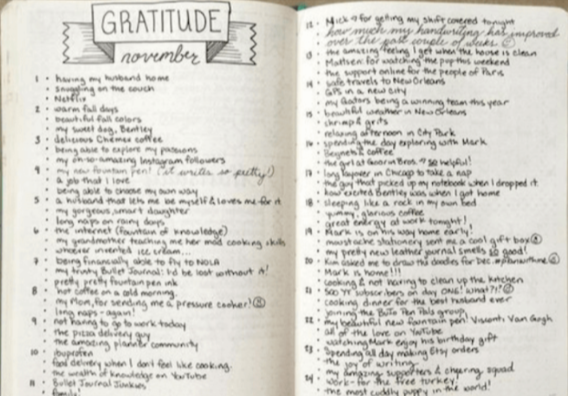 GRATITUDE
november
1 • having my husband home
snuggling on the couch
Netflix
2 • warm fall days
beautiful fall colors
• my sweet dog, Bentley
3 • delicious Chemex coffee
being able to explore my passions
• my oh-so-amazing Instagram followers
4 • my new fountain pen! (it writes so pretty!)
• a job that I love
• being able to choose my own way
5 • a husband that lets me be myself & loves me for it
• my gorgeous, smart daughter
• long naps on rainy days
6 • the internet (fountain of knowledge)
• my grandmother teaching me her mad cooking skills
• whoever invented ice cream...
7 • being financially able to fly to NOLA
• my trusty Bullet Journal: I'd be lost without it!
• pretty pretty fountain pen ink
8 • hot coffee on a cold morning.
• my Mom, for sending me a pressure cooker!
• long naps - again!
9 • not having to go to work today
• the pizza delivery guy
• the amazing planner community
10 • ibuprofen
• food delivery when I don't feel like cooking.
• the wealth of knowledge on YouTube
11 • Bullet Journal Junkies
• family!
12 • Mick for getting my shift covered tonight
how much my handwriting has improved
over the past couple of weeks
13 • the amazing feeling I get when the house is clean
• for watching the pup this weekend
• the support online for the people of Paris
14 • safe travels to New Orleans
• GPS in a new city
• my Gators being a winning team this year
15 • beautiful weather in New Orleans
• shrimp & grits
• relaxing afternoon in City Park
16 • spending the day exploring with Mark
• Beignets & coffee
• the girl at Goorin Bros. so helpful!
17 • long layover in Chicago to take a nap
• the guy that picked up my notebook when I dropped it
• how excited Bentley was when I got home
18 • sleeping like a rock in my own bed
• yummy, glorious coffee
• great energy at work tonight!
19 • Mark is on his way home early!
• moustache stationery sent me a cool gift box
• my pretty new leather journal smells so good!
20 • Kim asked me to draw the doodles for Dec.
• Mark is home!!!
• cooking & not having to clean up the kitchen
21 • 500 YT subscribers on day ONE! What?!
• cooking dinner for the best husband ever
• joining the Pen Pals group!
22 • my beautiful new fountain pen! Visconti Van Gogh
• all of the love on YouTube
• watching Mark enjoy his birthday gift
23 • Spending all day making Etsy orders
• the joy of writing.
• my amazing supporters & cheering squad
24 • work - for the free turkey!
• the most cuddly puppy in the world!